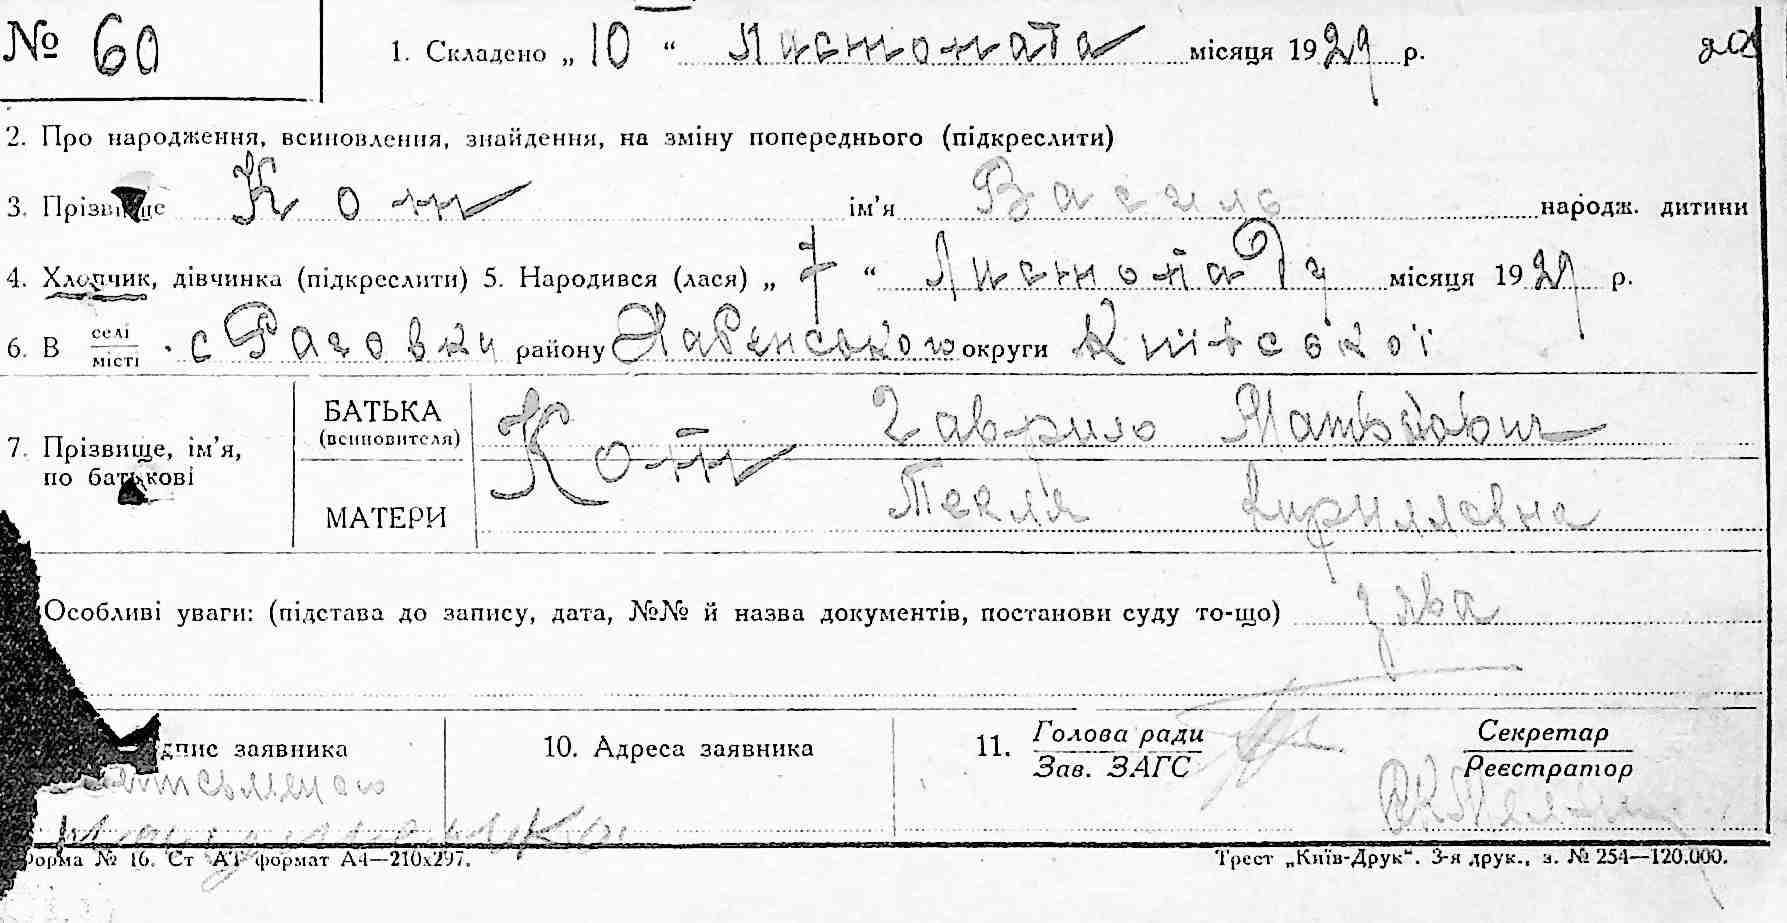 № 60 1. Складено „ 10 “ Листопата місяця 1929 р.
2. Про народження, всиновлення, знайдення, на зміну попереднього (підкреслити)
3. Прізвище Кот ім’я Василь народж. дитини
4. Хлопчик, дівчинка (підкреслити) 5. Народився (лася) „ 7 “ Листопада місяця 1929 р.
6. В селі місті с Раговки району Хабенського округи Київської
7. Прізвище, ім’я, по батькові
БАТЬКА (всиновителя) Кот Гаврило Матвійович
МАТЕРИ Текля Кирилловна
Особливі уваги: (підстава до запису, дата, №№ й назва документів, постанови суду то-що) зява
дпис заявника 10. Адреса заявника 11. Голова ради Секретар
Зав. ЗАГС Реєстратор
форма № 16. Ст АТ формат А4—210х297. Трест „Київ-Друк“. 3-я друк., з. № 254—120.000.